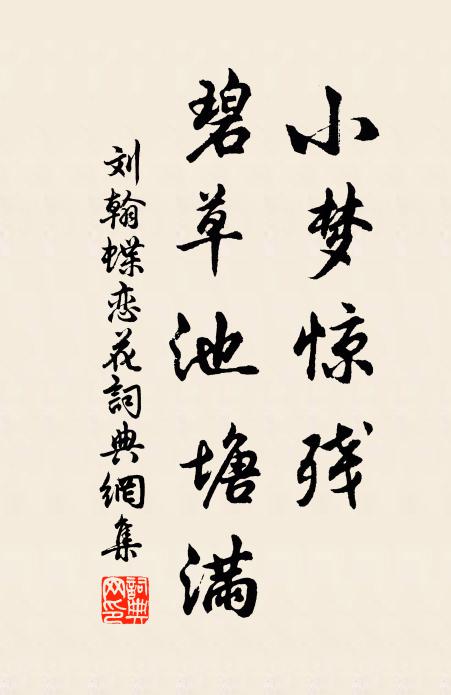 小梦惊残
碧草池塘满
刘翰蝶恋花詞典網集
詞典网印